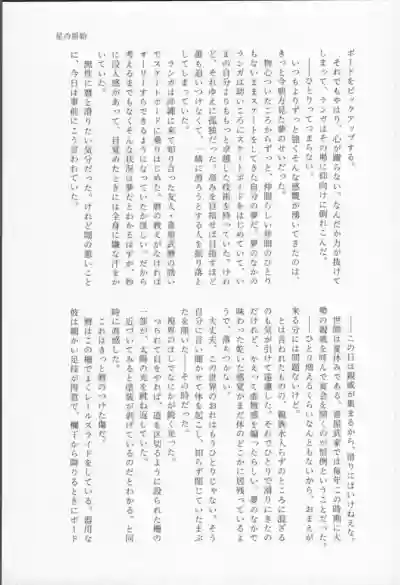 星の原始
ボードをピックアップする。
それでもやはり、心が躍らない。なんだか力が抜けて
しまって、ランガはその場に仰向けに倒れこんだ。
――ひとりってつまらない。
いつもよりずっと強くそんな感慨が湧いてきたのは、
きっと今朝方見た夢のせいだった。
物心ついたころからずっと、仲間らしい仲間のひとり
もないままスケートをしてきた自分の夢だ。夢のなかの
ランガは幼いころにスケートボードをはじめていて、い
まの自分よりももっと卓越した技術を持っていた。けれ
ど、それゆえに孤独だった。高みを目指せば目指すほど
誰も追いつけなくて、一緒に滑ろうとする人を振り落と
ランガは沖縄に来て知り合った友人・喜屋武暦の誘い
でスケートボードに乗りはじめた。暦の教えがなければ
オーリーすらできるようになっていたか怪しい。だから
考えるまでもなくそんな状況は夢だとわかるはずが、妙
に没入感があって、目覚めたときには全身に嫌な汗をか
いていた。
無性に暦と滑りたい気分だった。けれど間の悪いこと
に、今日は事前にこう言われていた。
――この日は親戚が集まるから、滑りにはいけねえな。
世間は夏休みである。喜屋武家では毎年この時期に大
勢の親戚を呼んで宴会を開くのが慣例ということだった。
――ひとり増えるくらいなんともないから、おまえが
来る分には問題ないけど。
とは言われたものの、親族水入らずのところに混ざる
のも気が引けて遠慮した。それでひとりで滑りにきたの
だけれど、かえって虚無感を煽ったらしい。夢のなかで
味わった乾いた感覚がまだ体のどこかに居残っているよ
うで、落ちつかない。
大丈夫、この世界のおれはもうひとりじゃない。そう
自分に言い聞かせて体を起こし、知らず閉じていたまぶ
たを開いた――その時だった。
視界のはしでなにかが鋭く光った。
つられて目をやれば、道を区切るように設られた柵の
一部が、太陽の光を跳ね返していた。
近づいてみると塗装が剥げているのだとわかる。と同
時に直感した。
これはきっと暦のつけた傷だ。
暦はこの柵でよくレールスライドをしている。器用な
彼は細かい足技が得意で、欄干から降りるときにボード